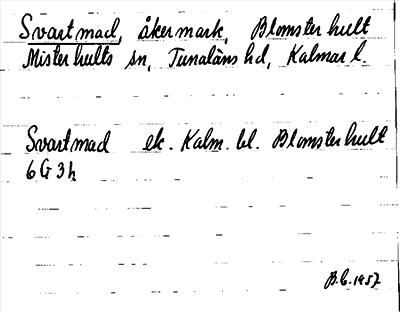 Svartmad, åkermark, Blomsterhult
Misterhults sn, Tunaläns hd, Kalmar l.
Svartmad ek. Kalm. bl. Blomsterhult
6 G 3 h
B.C. 1957